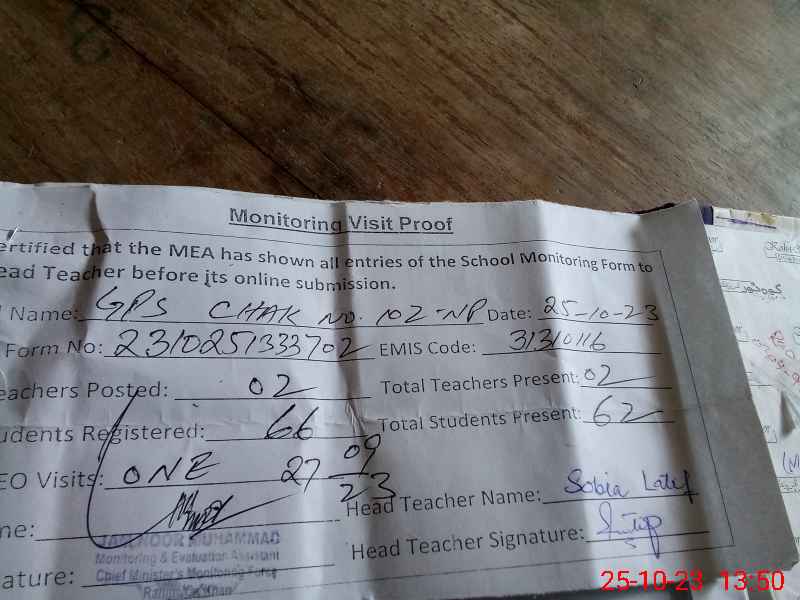 Monitoring Visit Proof
ertified that the MEA has shown all entries of the School Monitoring Form to
ead Teacher before its online submission.
l Name: GPS CHAK NO. 102-NP Date: 25-10-23
Form No: 2310251333702 EMIS Code: 31310116
eachers Posted: 02 Total Teachers Present: 02
udents Registered: 66 Total Students Present: 62
EO Visits: ONE 27 09 23
me: Head Teacher Name: Sobia Latif
MUHAMMAD
Monitoring & Evaluation Assistant
Head Teacher Signature:
ature: Chief Minister's Monitoring Force
Khan
25-10-23 13:50